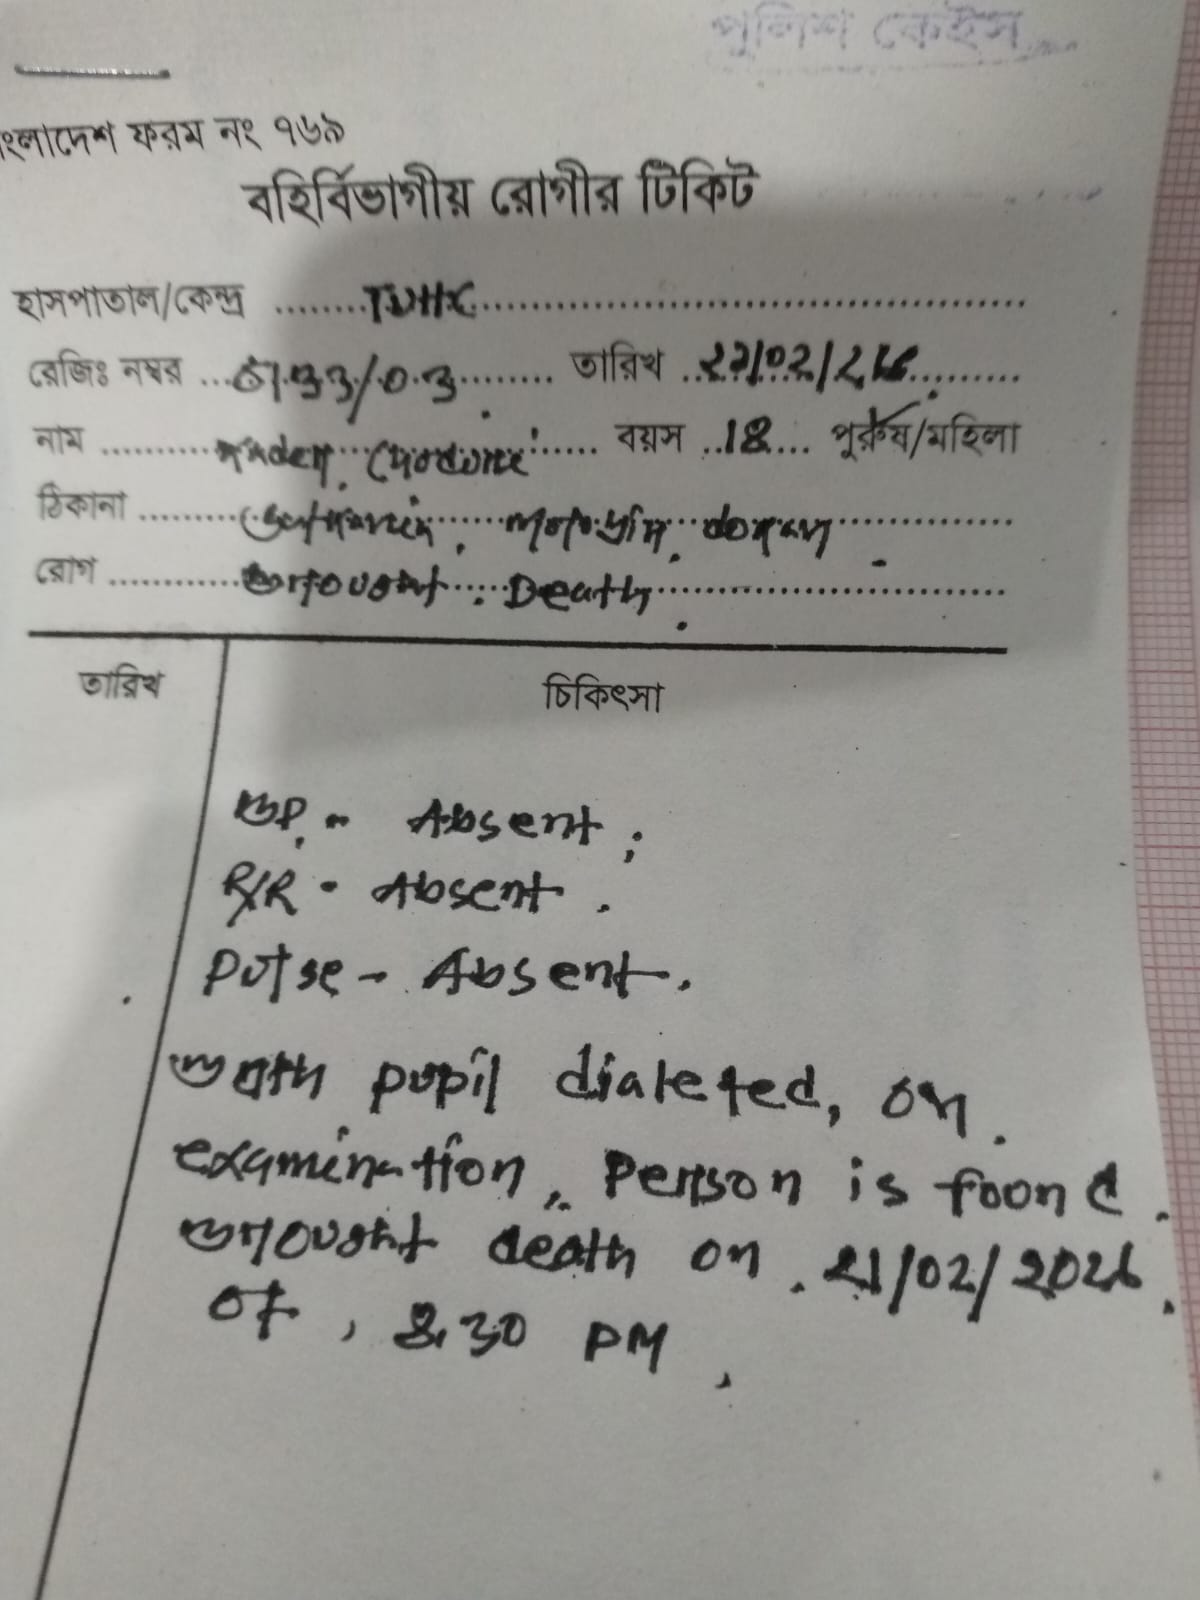 পুলিশ কেইস
বাংলাদেশ ফরম নং ৭৬৯
বহির্বিভাগীয় রোগীর টিকিট
হাসপাতাল/কেন্দ্র ........
রেজিঃ নম্বর ... তারিখ
নাম .......... বয়স ..18... পুরুষ/মহিলা
ঠিকানা
রোগ ........... Brought Death.
তারিখ চিকিৎসা
BP - Absent;
R/R - Absent.
Pulse - Absent.
Both pupil dialeted, on
examination, person is foond
Brought death on 21/02/2026
at, 8.30 PM